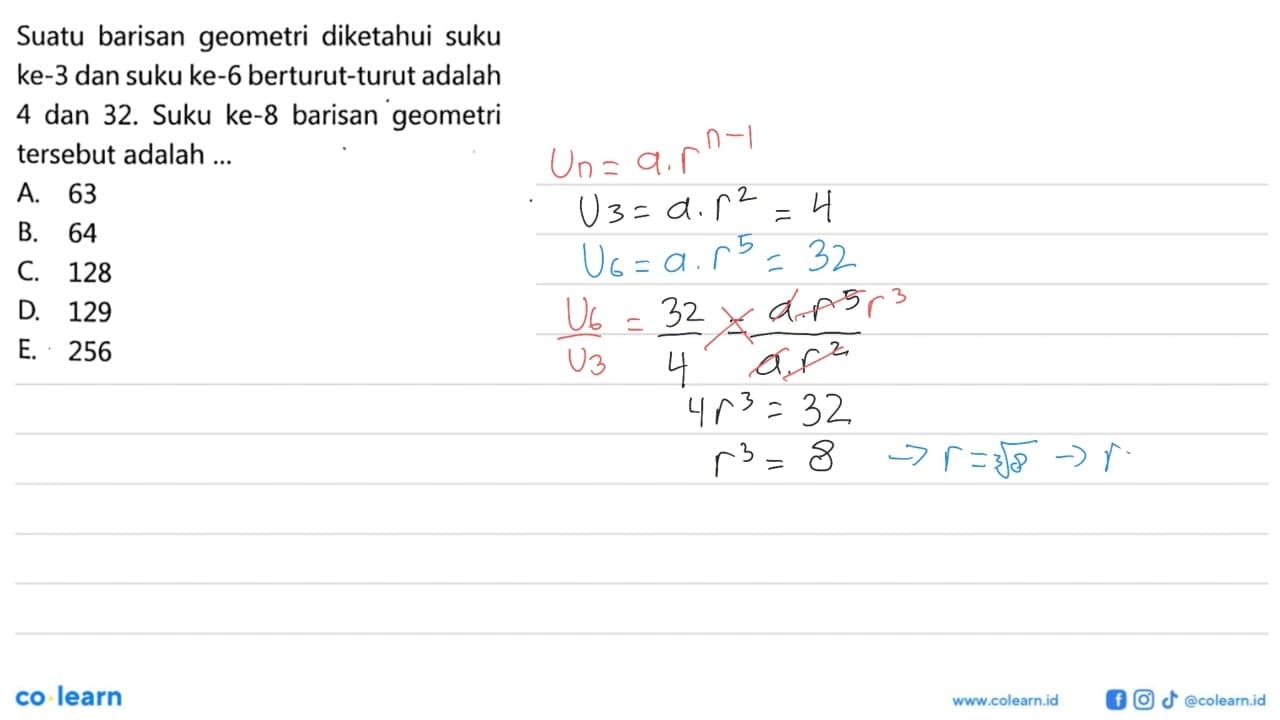 Suatu barisan geometri diketahui suku
ke-3 dan suku ke-6 berturut-turut adalah
4 dan 32. Suku ke-8 barisan geometri
tersebut adalah ...
A. 63
B. 64
C. 128
D. 129
E. 256
Un = a.r^n-1
U3 = a.r^2 = 4
U6 = a.r^5 = 32
U6/U3 = 32/4 = a.r^5/a.r^2 r^3
4r^3 = 32
r^3 = 8 → r = ∛8 → r
co learn
www.colearn.id
@colearn.id